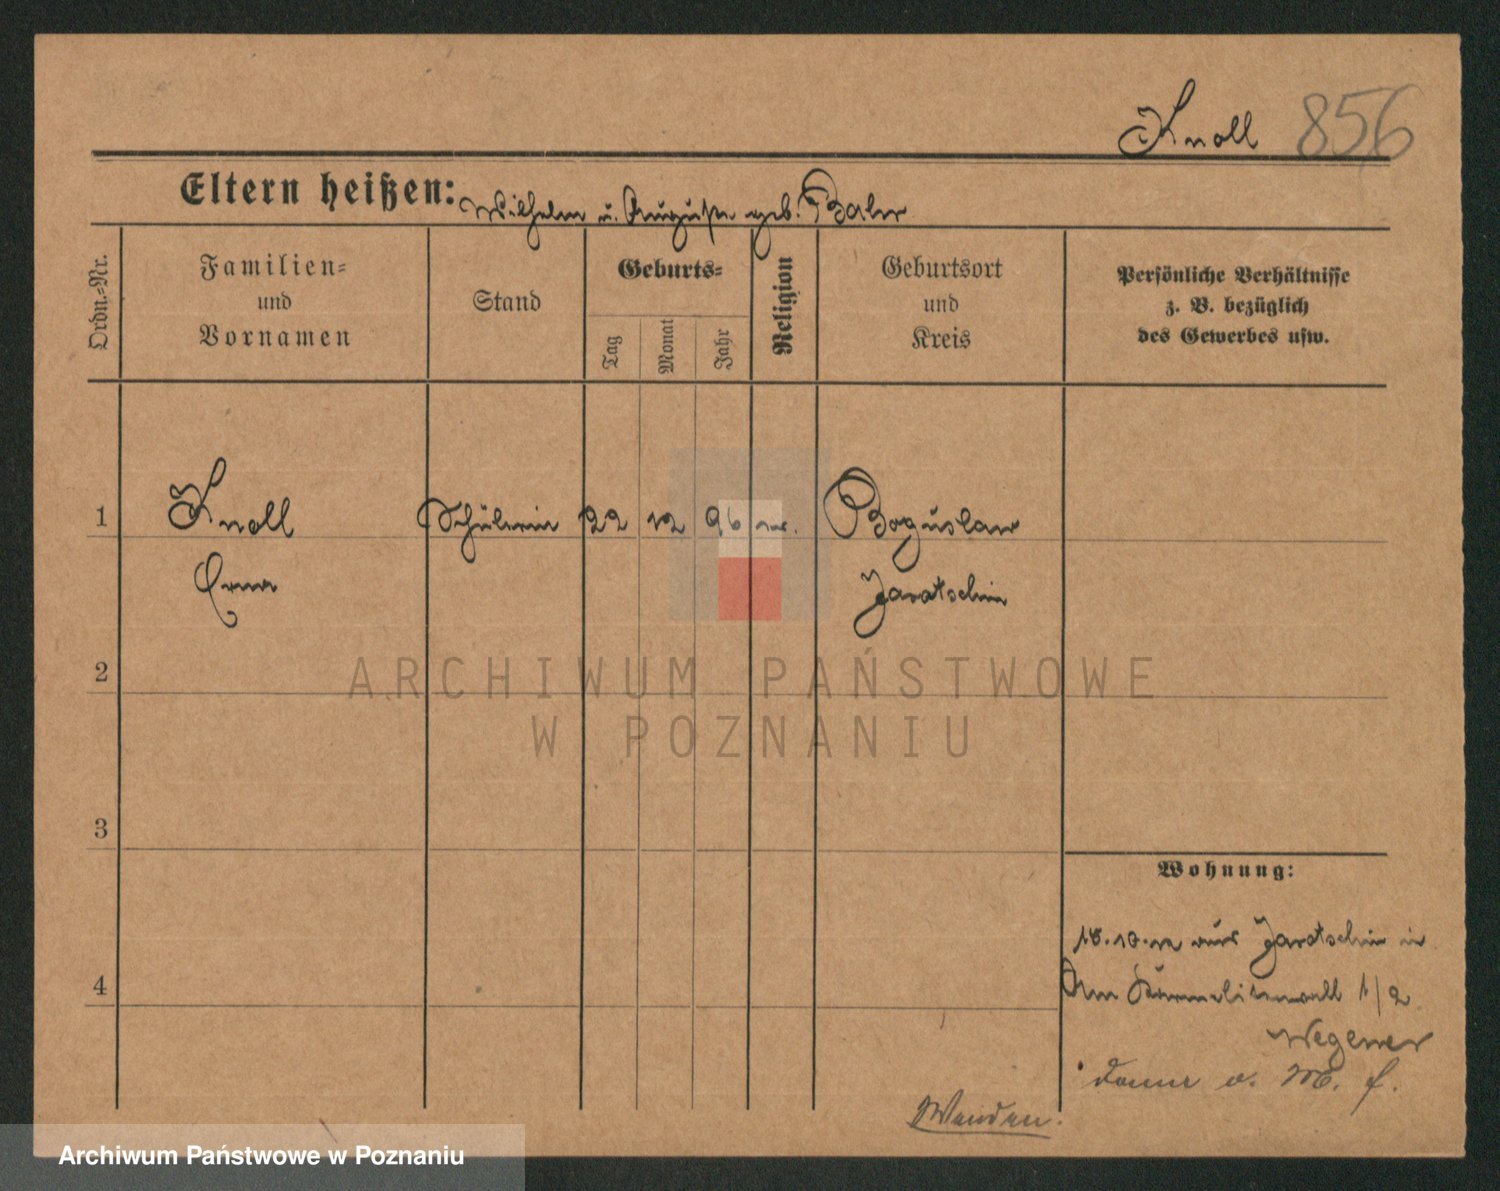 Knoll 856
Eltern heißen: Wilhelm u. Auguste geb. Bahr
Ordn.-Nr.
Familien-
und
Vornamen
Stand
Geburts-
Tag
Monat
Jahr
Religion
Geburtsort
und
Kreis
Persönliche Verhältnisse
z. B. bezüglich
des Gewerbes usw.
1 Knoll Schülerin 22 12 96 ev. Boguslaw
Erna Jarotschin
2
ARCHIWUM PAŃSTWOWE
W POZNANIU
3
4
Wohnung:
18.10.12 aus Jarotschin in
Am Karmeliterwall 1/2
Wegener
Wenden.
Archiwum Państwowe w Poznaniu